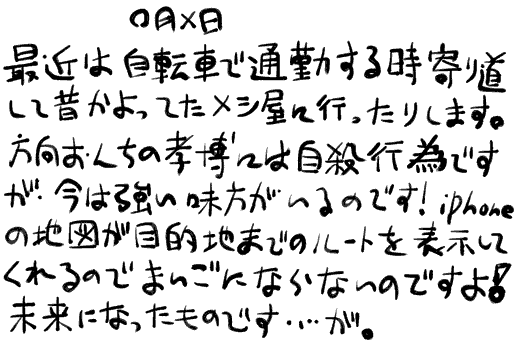 〇月×日
最近は自転車で通勤する時寄り道
して昔かよってたメシ屋に行ったりします。
方向おんちの孝博には自殺行為です
が今は強い味方がいるのです！iphone
の地図が目的地までのルートを表示して
くれるのでまいごにならないのですよ！
未来になったものです…が。